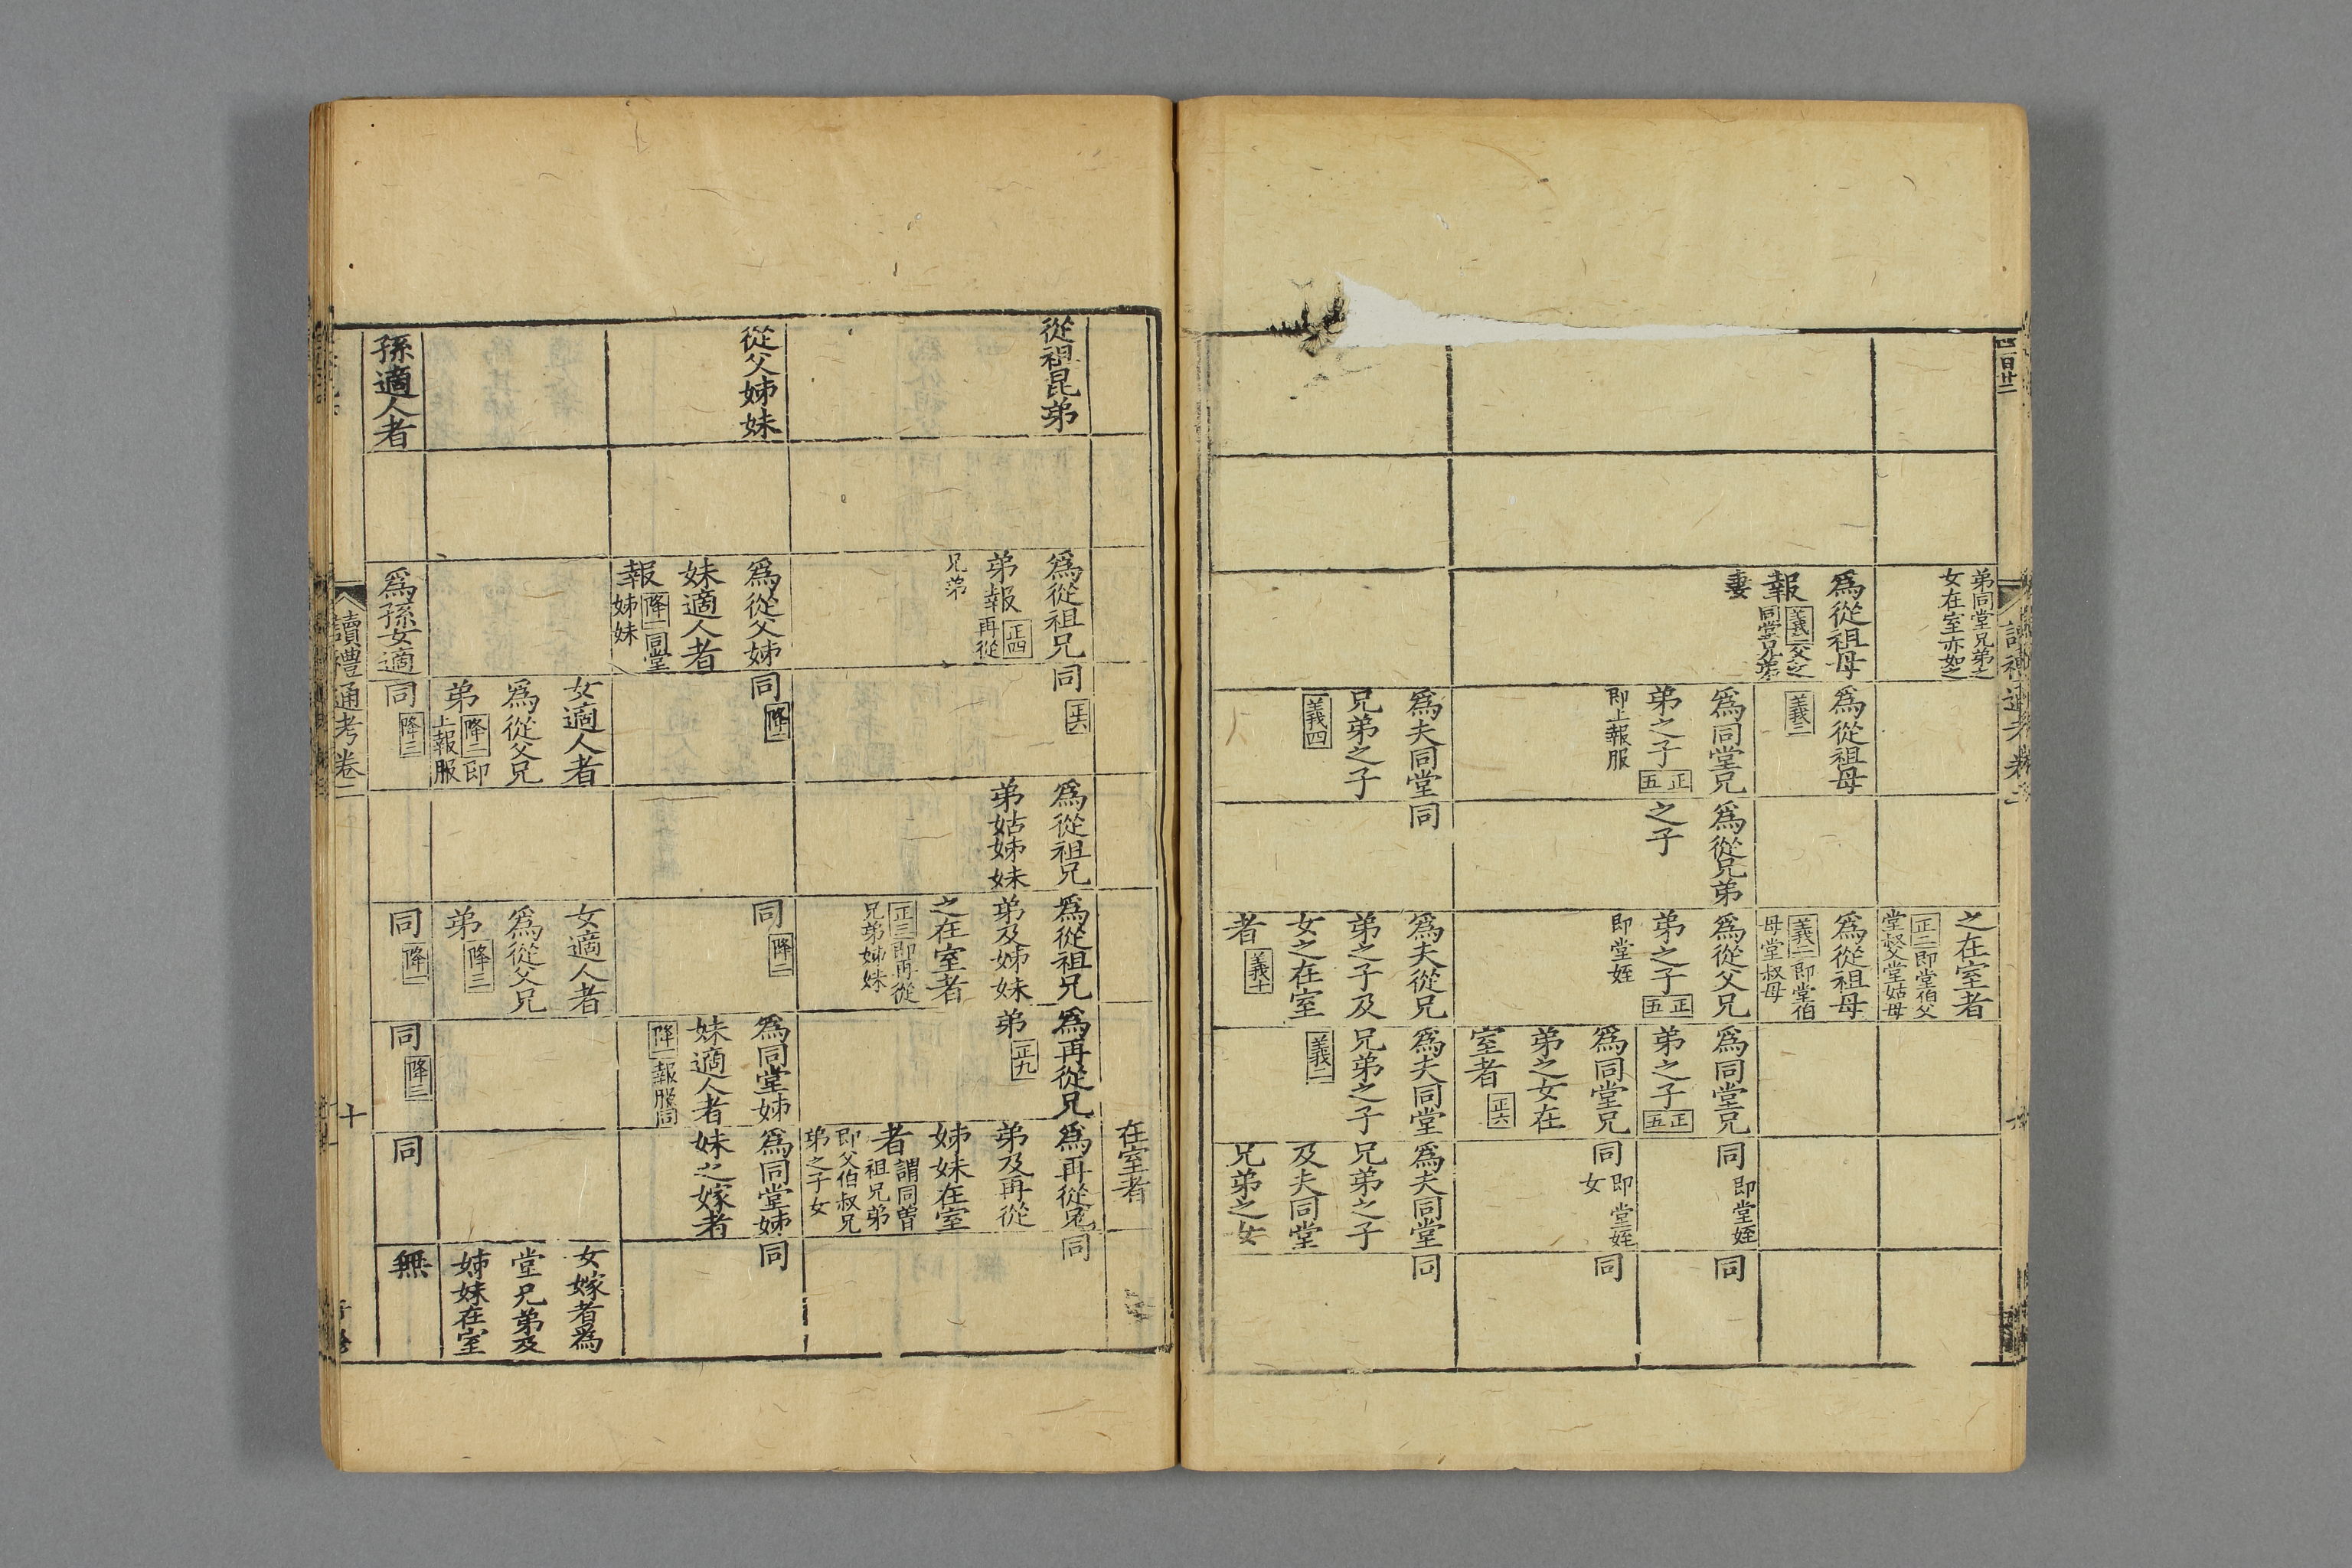 弟同堂兄弟之
女在室亦如之
之在室者
正二即堂伯父
堂叔父堂姑母
爲從祖母
報義二父之
同堂兄弟
妻
爲從祖母
義二
爲從祖母
義二即堂伯
母堂叔母
爲同堂兄
弟之子正五
即上報服
爲從兄弟
之子
爲從父兄
弟之子正五
即堂姪
爲同堂兄
弟之子正五
同即堂姪
同
爲同堂兄
弟之女在
室者正六
同即堂姪
女
同
爲夫同堂
兄弟之子
義四
同
爲夫從兄
弟之子及
女之在室
者義十
爲夫同堂
兄弟之子
義二
爲夫同堂
兄弟之子
及夫同堂
兄弟之女
同
在室者
從祖昆弟
爲從祖兄
弟報正四再從
兄弟
同正六
爲從祖兄
弟姑姊妹
爲從祖兄
弟及姊妹
之在室者
正三即再從
兄弟姊妹
爲再從兄
弟正九
爲再從兄
弟及再從
姊妹在室
者謂同曽
祖兄弟
即父伯叔兄
弟之子女
同
從父姊妹
爲從父姊
妹適人者
報降一同堂
姊妹
同降二
同降二
爲同堂姊
妹適人者
降一報服同
爲同堂姊
妹之嫁者
同
女適人者
爲從父兄
弟降二即
上報服
女適人者
爲從父兄
弟降三
女嫁者爲
堂兄弟及
姊妹在室
孫適人者
爲孫女適
同降三
同降一
同降三
同
無
讀禮通考卷二
十